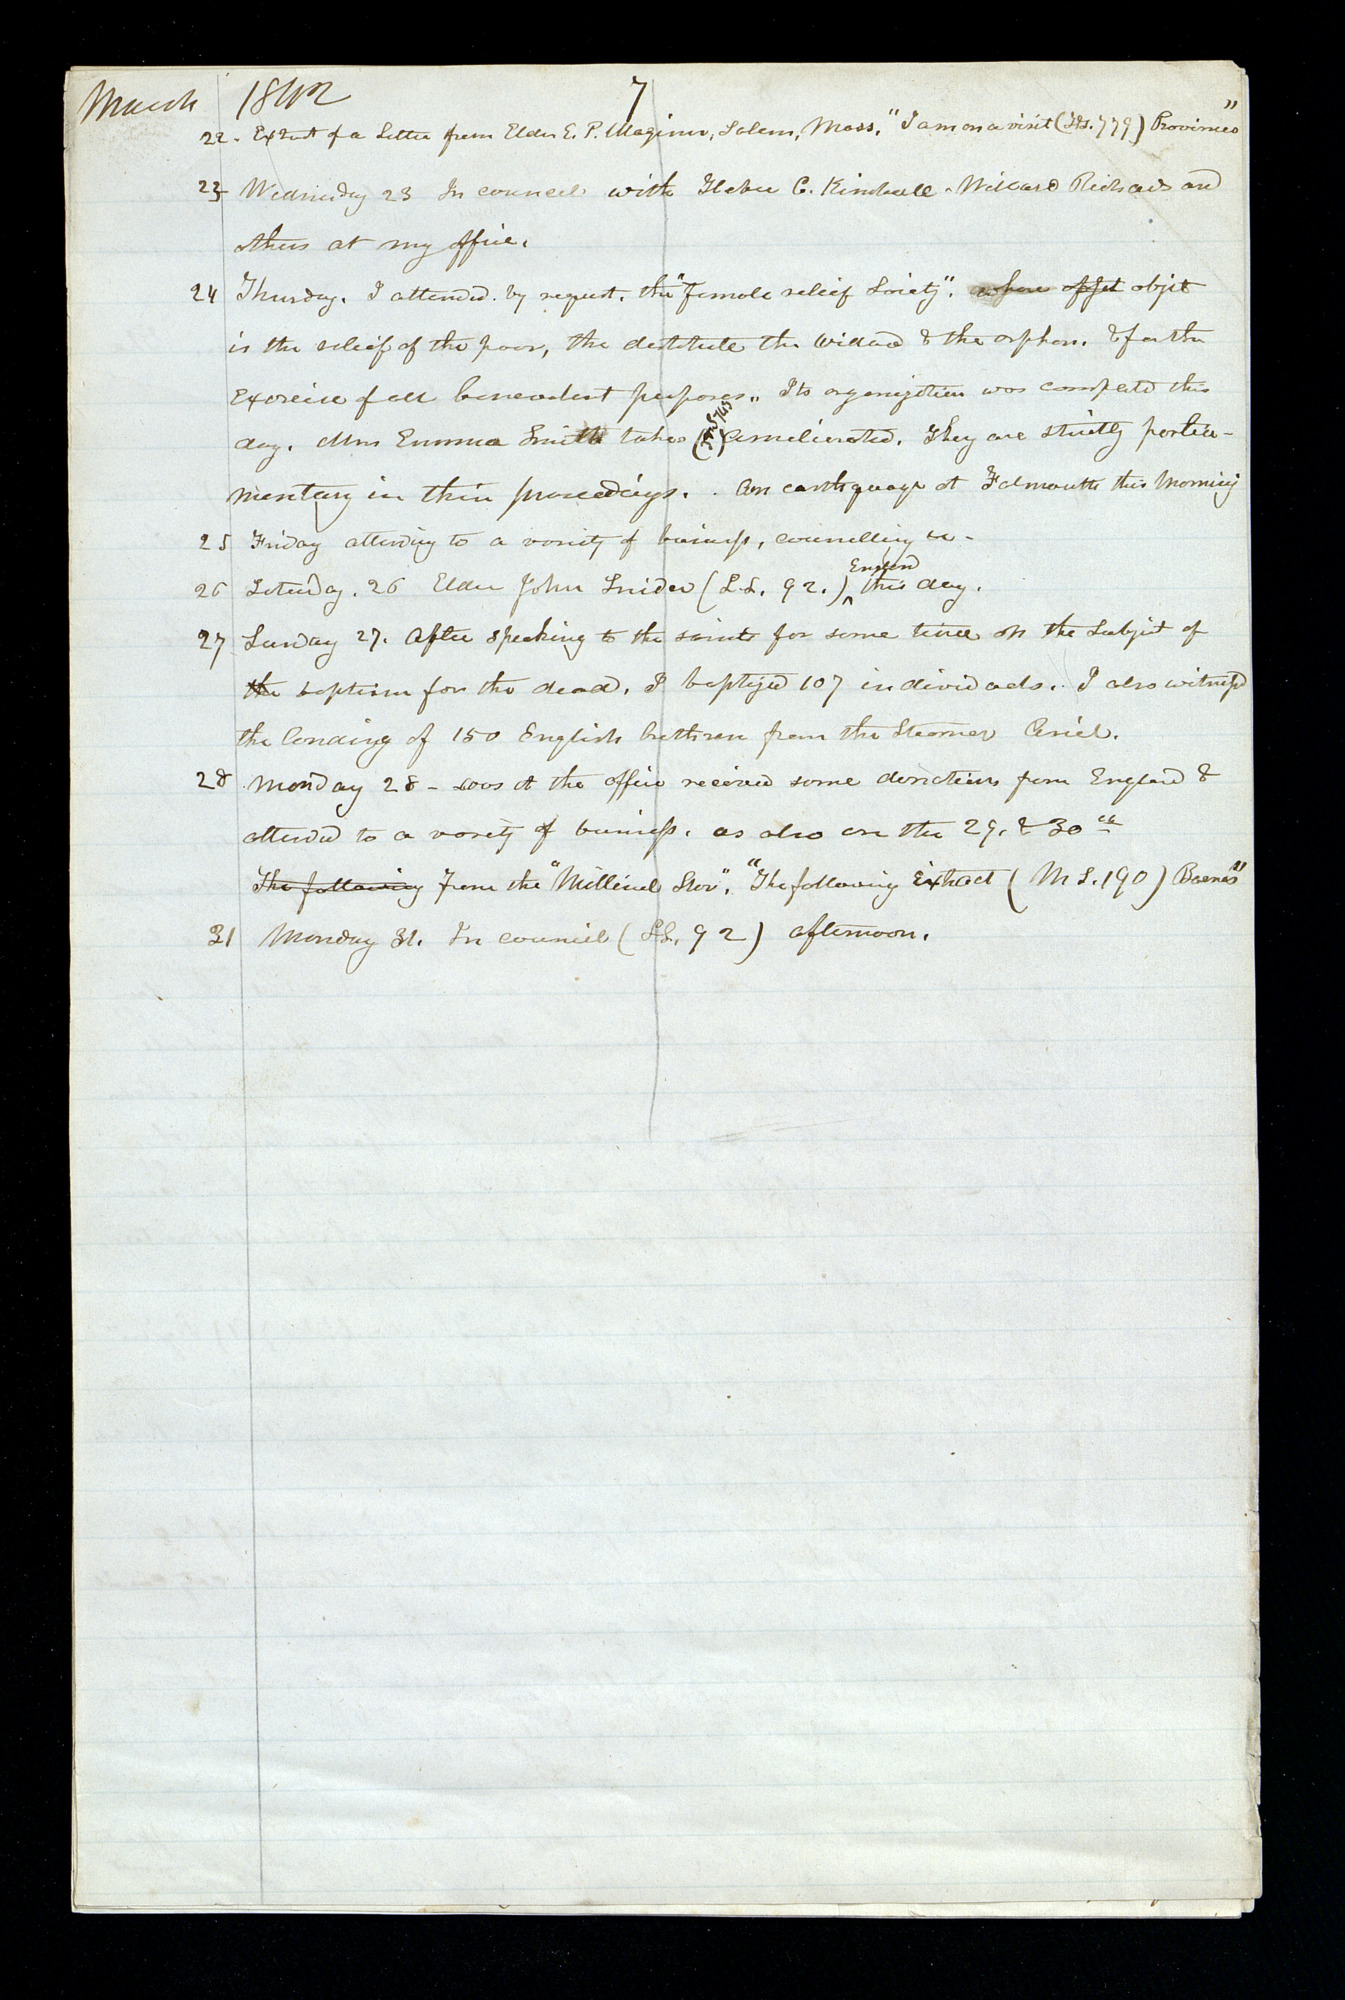 March 1842 7
22. Extract of a Letter from Elder E. P. Maginn, Salem, Mass, "I am on a visit (T&S. 779) Provinces"
23 Wednesday 23 In council with Heber C. Kimball. Willard Richards and
others at my office.
24 Thursday. I attended. by request. the "Female relief Society". whose object
is the relief of the poor, the destitute the widow & the orphan. & for the
Exercise of all benevolent purposes,, Its organization was completd this
day. Mrs Emma Smith takes (T&S 743) ameliorated. They are strictly parlia-
mentary in their proceedings. . An earthquage at Falmouth this Morning
25 Friday attending to a varity of business, councelling &c -
26 Saturday. 26 Elder John Snider (L.L. 92.) England this day.
27 Sunday 27. After speaking to the saints for some time on the Subjet of
the baptism for the dead. I baptized 107 individuals. I also witnessd
the landing of 150 English brethren from the Steamer Ariel.
28 Monday 28 - was at the office received some donations from England &
attended to a varity of business. as also on the 29. & 30th
The following From the "Millenial Star". "The following Extract (M S. 190) Barnes"
31 Monday 31. In council (L.L. 92) afternoon.